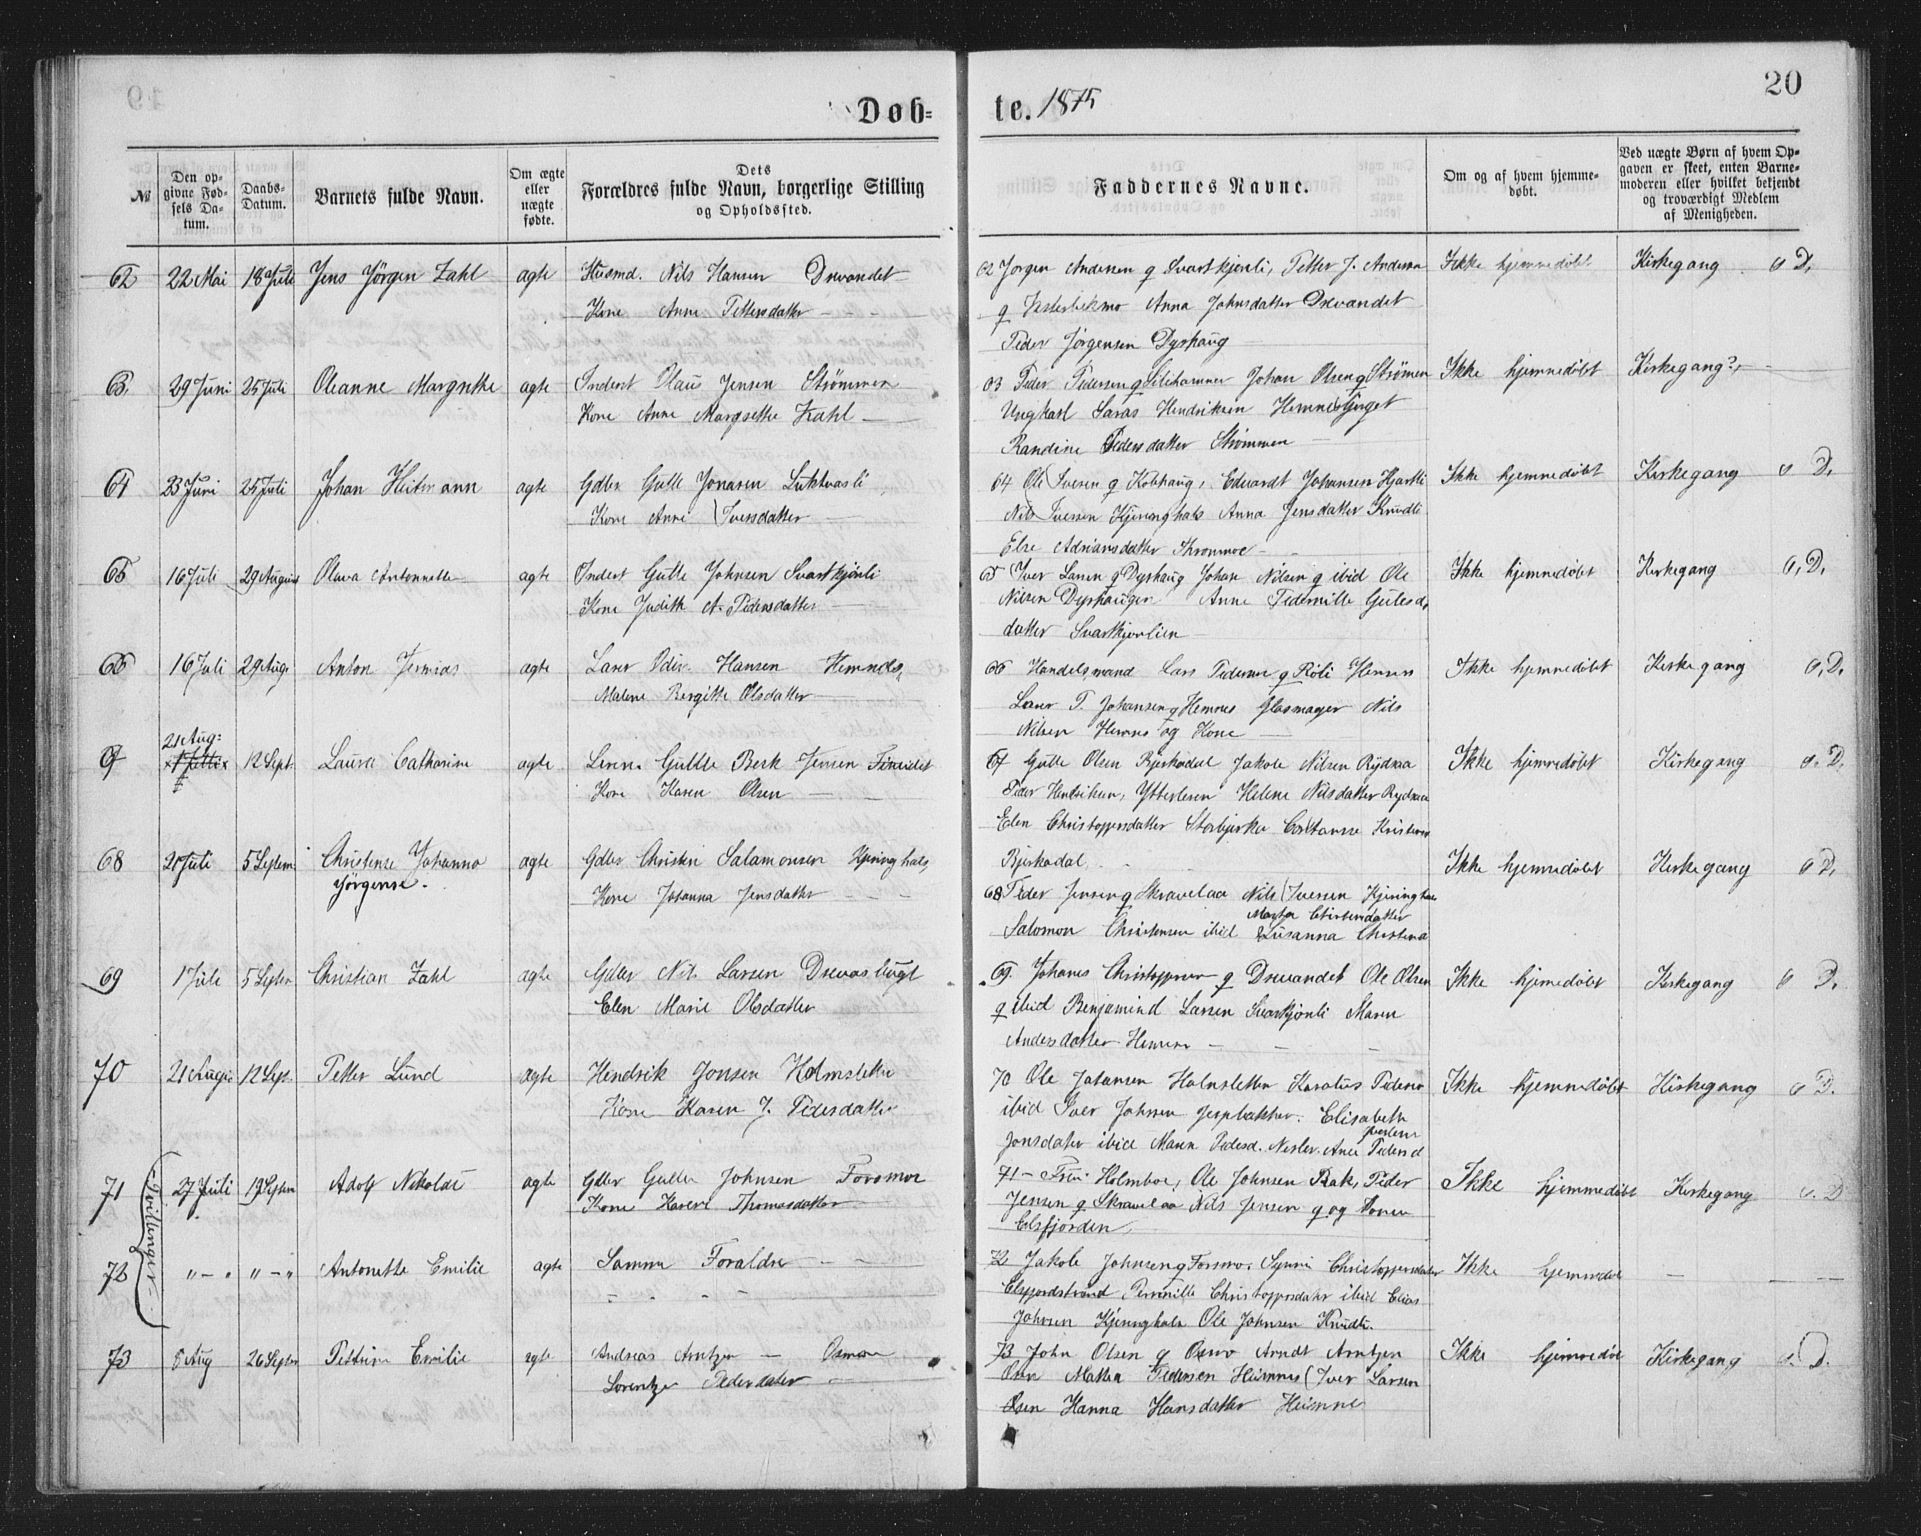 20
Døb=
te. 1875
№
Den op-
givne Fød-
sels Da-
tum.
Daabs-
Datum.
Barnets fulde Navn.
Om ægte
eller
uægte
fødte.
Dets
Forældres fulde Navn, borgerlige Stilling
og Opholdssted.
Faddernes Navne.
Om og af hvem hjemme-
døbt.
Ved uægte Børn af hvem Op-
gaven er skeet, enten Barne-
moderen eller hvilket bekjendt
og troværdigt Medlem
af Menigheden.
62 22 Mai 18 Juli Jens Jörgen Zahl agte Husmd. Nils Hansen Drevandet
Kone Anne Pettersdatter
62 Jörgen Andersen g Svartkjonli, Petter J. Andersen
g Anna Johnsdatter Drevandet
Peder Jörgensen Dyrhaug
Ikke hjemmedøbt Kirkegang o D.
63 29 Juni 25 Juli Oleanne Margrethe agte Inderst Olaus Jensen Strømmen
Kone Anne Margrethe Zahl
63 Peder Pedersen g Johan Olsen g Strømen
Ungkarl Hendriksen Hemnesbjerget
Randine Pedersdatter Strømmen
Ikke hjemmedøbt Kirkegang?
64 23 Juni 25 Juli Johan Heitmann agte Gdbr Gulle Jonasen Luktvasli
Kone Anne Iversdatter
64 Ole Iversen g Kobhaug, Eduardt Johansen Hjartli
Nils Iversen Kjeringhals Anna Jensdatter Knudli
Else Adriansdatter
Ikke hjemmedøbt Kirkegang o D.
65 16 Juli 29 August Olava Antonette agte Inderst Gulle Johnsen Svartkjönli
Kone Judith A. Pedersdatter
65 Iver Larsen g Dyrhaug Johan Nilsen g ibid Ole
Nilsen Dyrhaugen Anne Pedernille Gulesd,
datter Svartkjonlien
Ikke hjemmedøbt Kirkegang o, D,
66 16 Juli 29 Aug. Anton Jermias agte Hansen Hemnes
Malene Bergitte Olsdatter
66 Handelsmand Lars Pedersen g Röli Hemnes
P. Johansen g Hemnes Glasmager Nils
Nilsen Hemnes og Kone
Ikke hjemmedøbt Kirkegang o, D.
67 21 Aug: 12 Sept. Laura Catharine agte Gulle Berk Jensen
Kone Karen Olsen
67 Gulle Olsen Bjerkadal Jakob Nilsen Rydsaa
Peder Hendriksen, Ytterlesen Helene Nilsdatter Rydsaa
Elen Christoppersdatter Storbjerka
Bjerkadal
Ikke hjemmedøbt Kirkegang o. D.
68 Juli 5 Septem Christense Johanna agte Gdbr Salamonsen Kjeringhals,
Jörgense.
Kone Johanna Jensdatter
68 Peder Jensen g Skravelaa Nils Iversen Kjeringhals
Salomon Christensen ibid Susanna Christina
Ikke hjemmedøbt Kirkegang o D,
69 1 Juli 5 Septbr Christian Zahl agte Gdbr Nils Larsen Drevasbugt
Elen Marie Olsdatter
69. Johanes g Drevandet Ole Olsen
g ibid Benjamind Larsen Svartkjönli Maren
Andersdatter
Ikke hjemedøbt Kirkegang o D.
70 21 Aug. 12 Sept. Petter Lund agte Hendrik Jonsen Holmsletten
Kone Karen J. Pedersdatter
70 Ole Johansen Holmsletten
ibid Iver Johnsen Elisabeth
Jonsdater ibid Maren Pedersd.
Ikke hjemmedøbt Kirkegang o D.
Tvillinger
71 27 Juli 19 Septem Adolf Nikolai agte Gdbr Gulle Johnsen Forsmoe
Kone Karen Thomasdatter
71 – Fru Holmboe, Ole Johnsen Rak, Peder
Jensen g Skravelaa Nils Jensen g og
Elsfjorden
Ikke hjemmedøbt Kirkegang o. D
72 " – " " – " Antonette Emilie agte Samme Foraldre
72 Jakob Johnsen g Forsmo. Christoppersdatter
Elsfjordstrand Christoppersdater ibid Elias
Johnsen Kjeringhals Ole Johnsen Knudli.
Ikke hjemmdøbt – –
73 8 Aug 26 Septbr Pettrine Emilie agte Andreas Arntzen Osmoe
Lorentze Pedersdater
73 John Olsen g Osmo Arndt Arntzen
Osen Pedersen Heimnes Iver Larsen
Osen Hanna Hansdatter Heimnes
Ikke hjemmedøbt Kirkegang o. D.